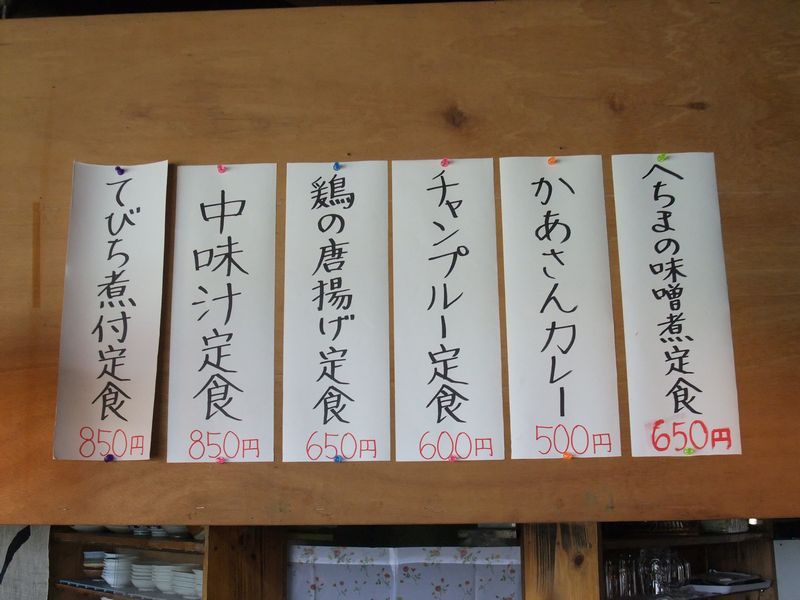 へちまの味噌煮定食
650円
かあさんカレー
500円
チャンプルー定食
600円
鶏の唐揚げ定食
650円
中味汁定食
850円
てびち煮付定食
850円